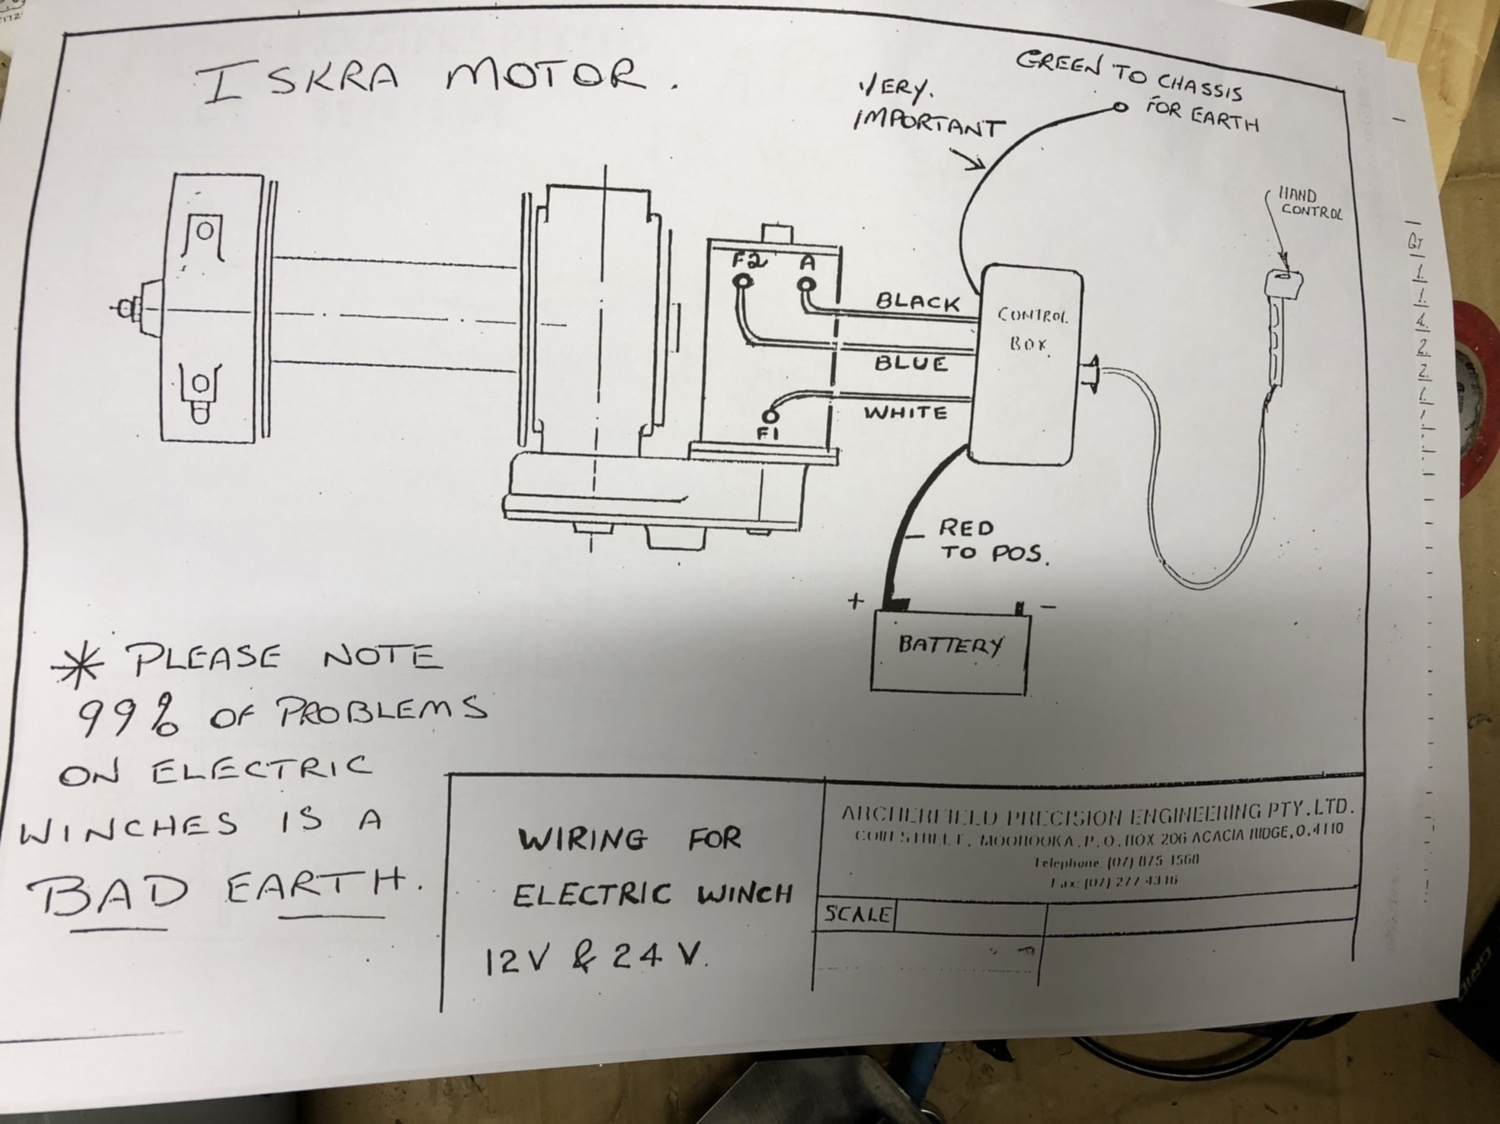 ISKRA MOTOR.
GREEN TO CHASSIS
FOR EARTH
VERY.
IMPORTANT
HAND
CONTROL
F2
A
BLACK
BLUE
WHITE
F1
CONTROL
BOX.
RED
TO POS.
+
-
BATTERY
* PLEASE NOTE
99% OF PROBLEMS
ON ELECTRIC
WINCHES IS A
BAD EARTH.
WIRING FOR
ELECTRIC WINCH
12V & 24V.
ARCHERFIELD PRECISION ENGINEERING PTY. LTD.
STREET, MOOROOKA. P.O. BOX 206 ACACIA RIDGE, Q. 4110
Telephone. (07) 875 1568
Fax: (07) 277 4346
SCALE
QT
1.
1.
4.
2.
2.
1.